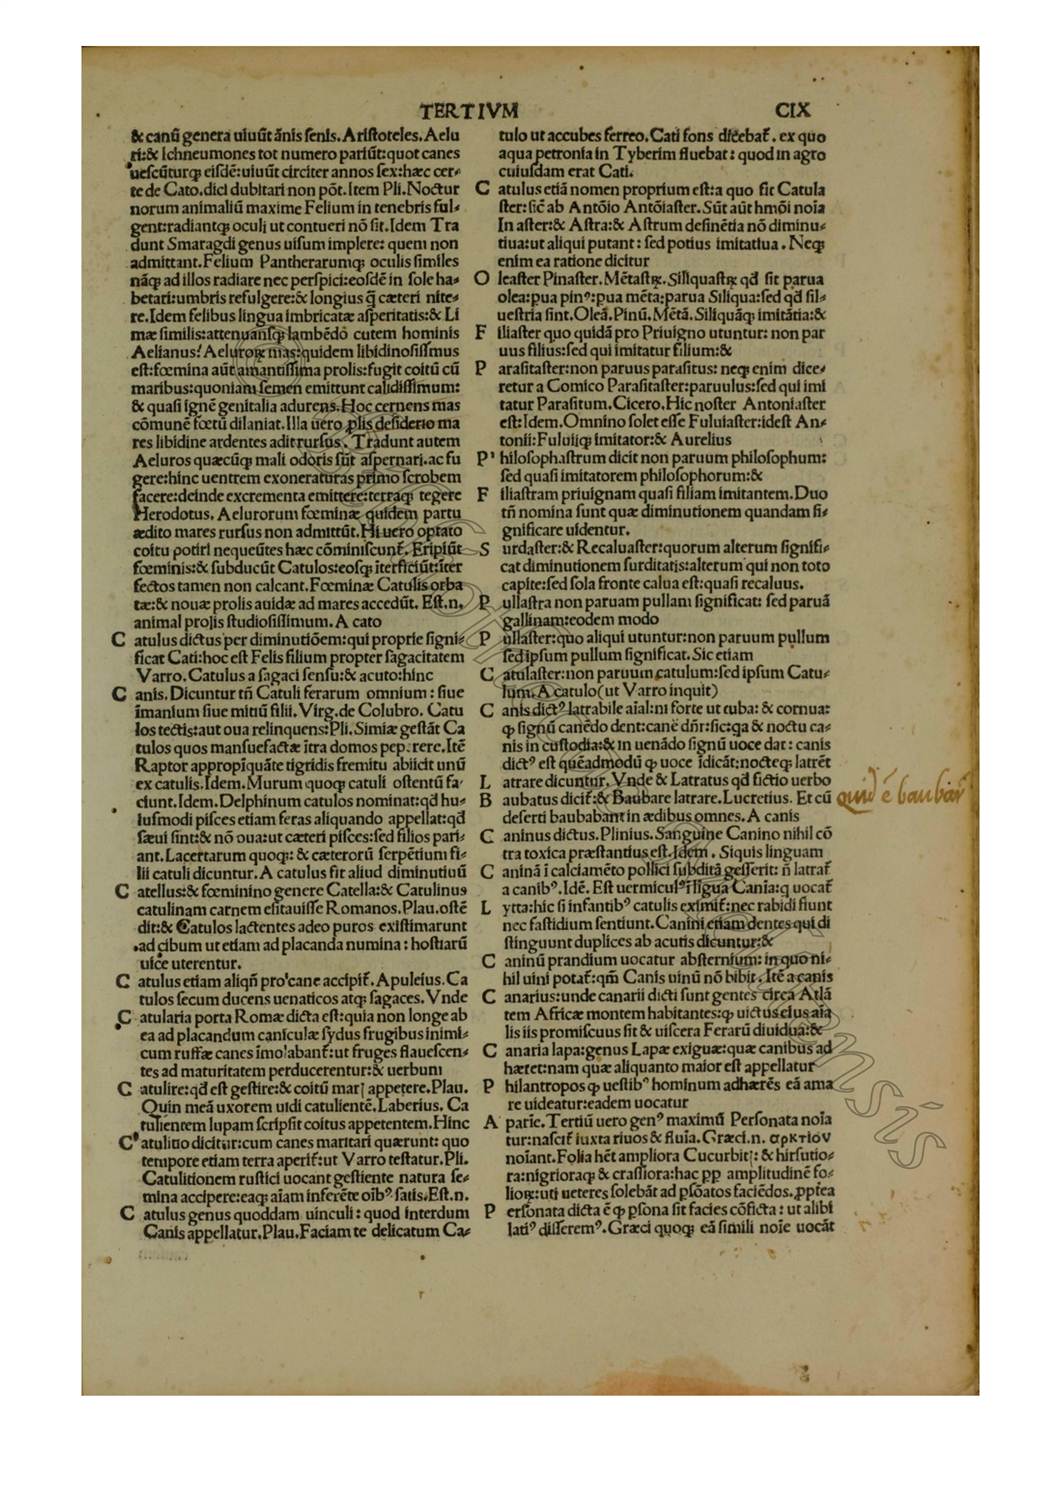 TERTIVM
CIX
& canũ genera uiuũt ãnis senis. Aristoteles. Aelu
ri:& Ichneumones tot numero pariũt:quot canes
uescũturq; eisdẽ:uiuũt circiter annos sex:hæc cer-
te de Cato.dici dubitari non põt. Item Pli. Noctur
norum animaliũ maxime Felium in tenebris ful-
gent:radiantq; oculi ut contueri nõ sit. Idem Tra
dunt Smaragdi genus uisum implere: quem non
admittant. Felium Pantherarumq; oculis similes
nãq; ad illos radiare nec perspici:eosdẽ in sole ha-
betari:umbris refulgere:& longius q̃ cæteri nite-
re. Idem felibus lingua imbricatæ asperitatis:& Li
mæ similis:attenuansq; lambẽdo cutem hominis
Aelianus. Aeluroꝝ mas:quidem libidinosissimus
est:fœmina aũt amantissima prolis:fugit coitũ cũ
maribus:quoniam semen emittunt calidissimum:
& quasi ignẽ genitalia adurens. Hoc cernens mas
cõmunẽ fœtũ dilaniat. Illa uero ꝓlis desiderio ma
res libidine ardentes adit rursus. Tradunt autem
Aeluros quæcũq; mali odoris sũt aspernari. ac fu
gere:hinc uentrem exoneraturas primo scrobem
facere:deinde excrementa emittere:terraq; tegere
Herodotus. Aelurorum fœminæ quidem partu
ædito mares rursus non admittũt. Hi uero optato
coitu potiri nequeũtes hæc cõminiscunt̃. Eripiũt
fœminis:& subducũt Catulos:eosq; ĩterficiũt:ĩter
fectos tamen non calcant. Fœminæ Catulis orba
tæ:& nouæ prolis auidæ ad mares accedũt. Est.n.
animal prolis studiosissimum. A cato
C atulus dictus per diminutiõem:qui proprie signi-
ficat Cati:hoc est Felis filium propter sagacitatem
Varro. Catulus a sagaci sensu:& acuto:hinc
C anis. Dicuntur tñ Catuli ferarum omnium: siue
ĩmanium siue mitiũ filii. Virg. de Colubro. Catu
los tectis:aut oua relinquens:Pli. Simiæ gestãt Ca
tulos quos mansuefactæ ĩtra domos peperere. Itẽ
Raptor appropĩquãte tigridis fremitu abiicit unũ
ex catulis. Idem. Murum quoq; catuli ostentũ fa-
ciunt. Idem. Delphinum catulos nominat:qd hu-
iusmodi pisces etiam feras aliquando appellat:qd
sæui sint:& nõ oua:ut cæteri pisces:sed filios pari-
ant. Lacertarum quoq;: & cæterorũ serpẽtium fi-
lii catuli dicuntur. A catulus fit aliud diminutiuũ
C atellus:& fœminino genere Catella:& Catulinus
catulinam carnem esitauisse Romanos. Plau. ostẽ
dit:& Catulos lactentes adeo puros existimarunt
ad cibum ut etiam ad placanda numina: hostiarũ
uice uterentur.
C atulus etiam aliqñ pro cane accipit̃. Apuleius. Ca
tulos secum ducens uenaticos atq; sagaces. Vnde
C atularia porta Romæ dicta est:quia non longe ab
ea ad placandum caniculæ sydus frugibus inimi-
cum ruffæ canes ĩmolabant̃:ut fruges flauescen-
tes ad maturitatem perducerentur:& uerbum
C atulire:qd est gestire:& coitũ mari appetere. Plau.
Quin meã uxorem uidi catulientẽ. Laberius. Ca
tulientem lupam scripsit coitus appetentem. Hinc
C atulitio dicitur:cum canes maritari quærunt: quo
tempore etiam terra aperit̃:ut Varro testatur. Pli.
Catulitionem rustici uocant gestiente natura se-
mina accipere:eaq; aĩam inferẽte oĩb⁹ satis. Est.n.
C atulus genus quoddam uinculi: quod interdum
Canis appellatur. Plau. Faciam te delicatum Ca-
tulo ut accubes ferreo. Cati fons dicebat̃. ex quo
aqua petronia in Tyberim fluebat: quod in agro
cuiusdam erat Cati.
C atulus etiã nomen proprium est:a quo fit Catula
ster:sic̃ ab Antõio Antõiaster. Sũt aũt hmõi noĩa
In aster:& Astra:& Astrum desinẽtia nõ diminu-
tiua:ut aliqui putant: sed potius imitatiua. Neq;
enim ea ratione dicitur
O leaster Pinaster. Mẽtastꝝ. Siliquastꝝ qd̃ sit parua
olea:pua pin⁹:pua mẽta:parua Siliqua:sed qd̃ sil-
uestria sint. Oleã. Pinũ. Mẽtã. Siliquãq; imitãtia:&
F iliaster quo quidã pro Priuigno utuntur: non par
uus filius:sed qui imitatur filium:&
P arasitaster:non paruus parasitus: neq; enim dice-
retur a Comico Parasitaster:paruulus:sed qui imi
tatur Parasitum. Cicero. Hic noster Antoniaster
est: Idem. Omnino solet esse Fuluiaster:idest An-
tonii:Fuluiiq; imitator:& Aurelius
P hilosophastrum dicit non paruum philosophum:
sed quasi imitatorem philosophorum:&
F iliastram priuignam quasi filiam imitantem. Duo
tñ nomina sunt quæ diminutionem quandam si-
gnificare uidentur.
S urdaster:& Recaluaster:quorum alterum signifi-
cat diminutionem surditatis:alterum qui non toto
capite:sed sola fronte calua est:quasi recaluus.
P ullastra non paruam pullam significat: sed paruã
gallinam:eodem modo
P ullaster:quo aliqui utuntur:non paruum pullum
sed ipsum pullum significat. Sic etiam
C atulaster:non paruum catulum:sed ipsum Catu-
lum. A catulo(ut Varro inquit)
C anis dict⁹ latrabile aĩal:ni forte ut tuba: & cornua:
ꝙ signũ canẽdo dent:canẽ dñr:sic:qa & noctu ca-
nis in custodia:& in uenãdo signũ uoce dat: canis
dict⁹ est quẽadmodũ ꝙ uoce ĩdicãt:nocteq; latrẽt
L atrare dicuntur. Vnde & Latratus qd̃ fictio uerbo
B aubatus dicit̃:& Baubare latrare. Lucretius. Et cũ
deserti baubabant in ædibus omnes. A canis
C aninus dictus. Plinius. Sanguine Canino nihil cõ
tra toxica præstantius est. Idem. Siquis linguam
C aninã ĩ calciamẽto pollici subditã gesserit: ñ latrat̃
a canib⁹. Idẽ. Est uermicul⁹ ĩ lĩgua Canĩa:q uocat̃
L ytta:hic si infantib⁹ catulis eximit̃:nec rabidi fiunt
nec fastidium sentiunt. Canini etiam dentes qui di
stinguunt duplices ab acutis dicuntur:&
C aninũ prandium uocatur abstemium: in quo ni-
hil uini potat̃:qm̃ Canis uinũ nõ bibit. Itẽ a canis
C anarius:unde canarii dicti sunt gentes circa Atlã
tem Africæ montem habitantes:ꝙ uictus eius aĩa
lis iis promiscuus sit & uiscera Ferarũ diuidua:&
C anaria lapa:genus Lapæ exiguæ:quæ canibus ad
hæret:nam quæ aliquanto maior est appellatur
P hilantropos ꝙ uestib⁹ hominum adhærẽs eã ama
re uideatur:eadem uocatur
A parie. Tertiũ uero gen⁹ maximũ Personata noĩa
tur:nascit̃ iuxta riuos & fluĩa. Græci.n. αρκτιον
noĩant. Folia hẽt ampliora Cucurbitį: & hirsutio-
ra:nigrioraq; & crassiora:hac ꝓp amplitudinẽ fo-
lioꝝ:uti ueteres solebãt ad psõatos faciẽdos. ꝓptea
P ersonata dicta ẽ ꝙ psona sit facies cõficta: ut alibi
lati⁹ disserem⁹. Græci quoq; eã simili noĩe uocãt
quid ẽ baubar̃